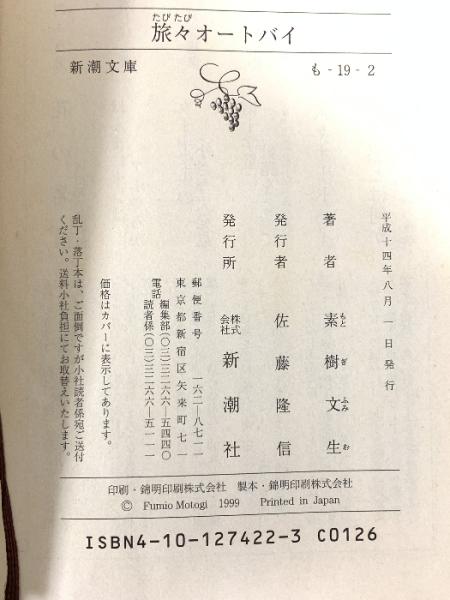 たびたび
旅々オートバイ
新潮文庫
も-19-2
平成十四年八月一日発行
著者 素樹文生
もとぎふみお
発行者 佐藤隆信
発行所 株式会社 新潮社
郵便番号 一六二-八七一一
東京都新宿区矢来町七一
電話 編集部(〇三)三二六六-五四四〇
読者係(〇三)三二六六-五一一一
価格はカバーに表示してあります。
乱丁・落丁本は、ご面倒ですが小社読者係宛ご送付
ください。送料小社負担にてお取替えいたします。
印刷・錦明印刷株式会社 製本・錦明印刷株式会社
© Fumio Motogi 1999 Printed in Japan
ISBN4-10-127422-3 C0126